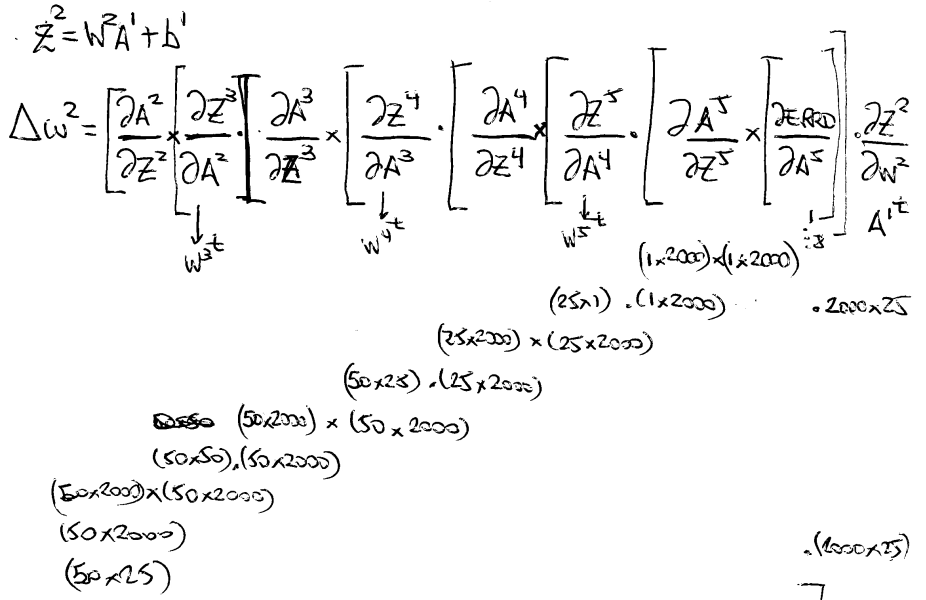 Z² = W²A¹ + b¹
Δw² = [∂A²/∂Z² × [∂Z³/∂A² · [∂A³/∂Z³ × [∂Z⁴/∂A³ · [∂A⁴/∂Z⁴ × [∂Z⁵/∂A⁴ · [∂A⁵/∂Z⁵ × [∂ERRO/∂A⁵]] · ∂Z²/∂w²
↓ ↓ ↓ A¹ᵗ
w³ᵗ w⁴ᵗ w⁵ᵗ
(1×2000)×(1×2000)
(25×1) · (1×2000) · 2000×25
(25×2000) × (25×2000)
(50×25) · (25×2000)
(50×2000) × (50×2000)
(50×50) · (50×2000)
(50×2000)×(50×2000)
(50×2000) · (2000×25)
(50×25)